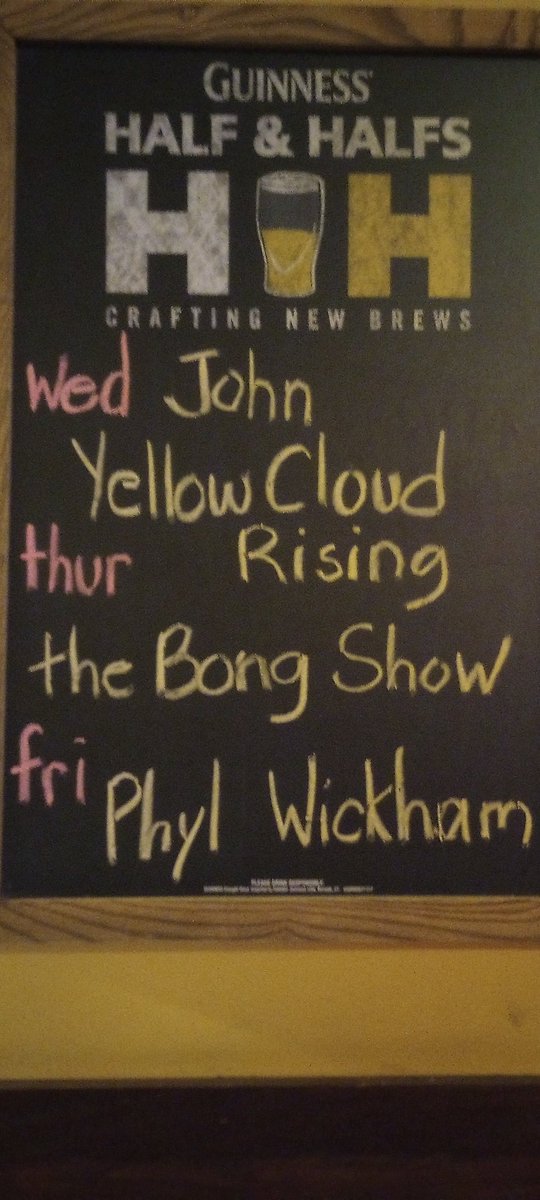 GUINNESS
HALF & HALFS
H H
CRAFTING NEW BREWS
Wed John
Yellow Cloud
thur Rising
the Bong Show
fri
Phyl Wickham
PLEASE DRINK RESPONSIBLY.